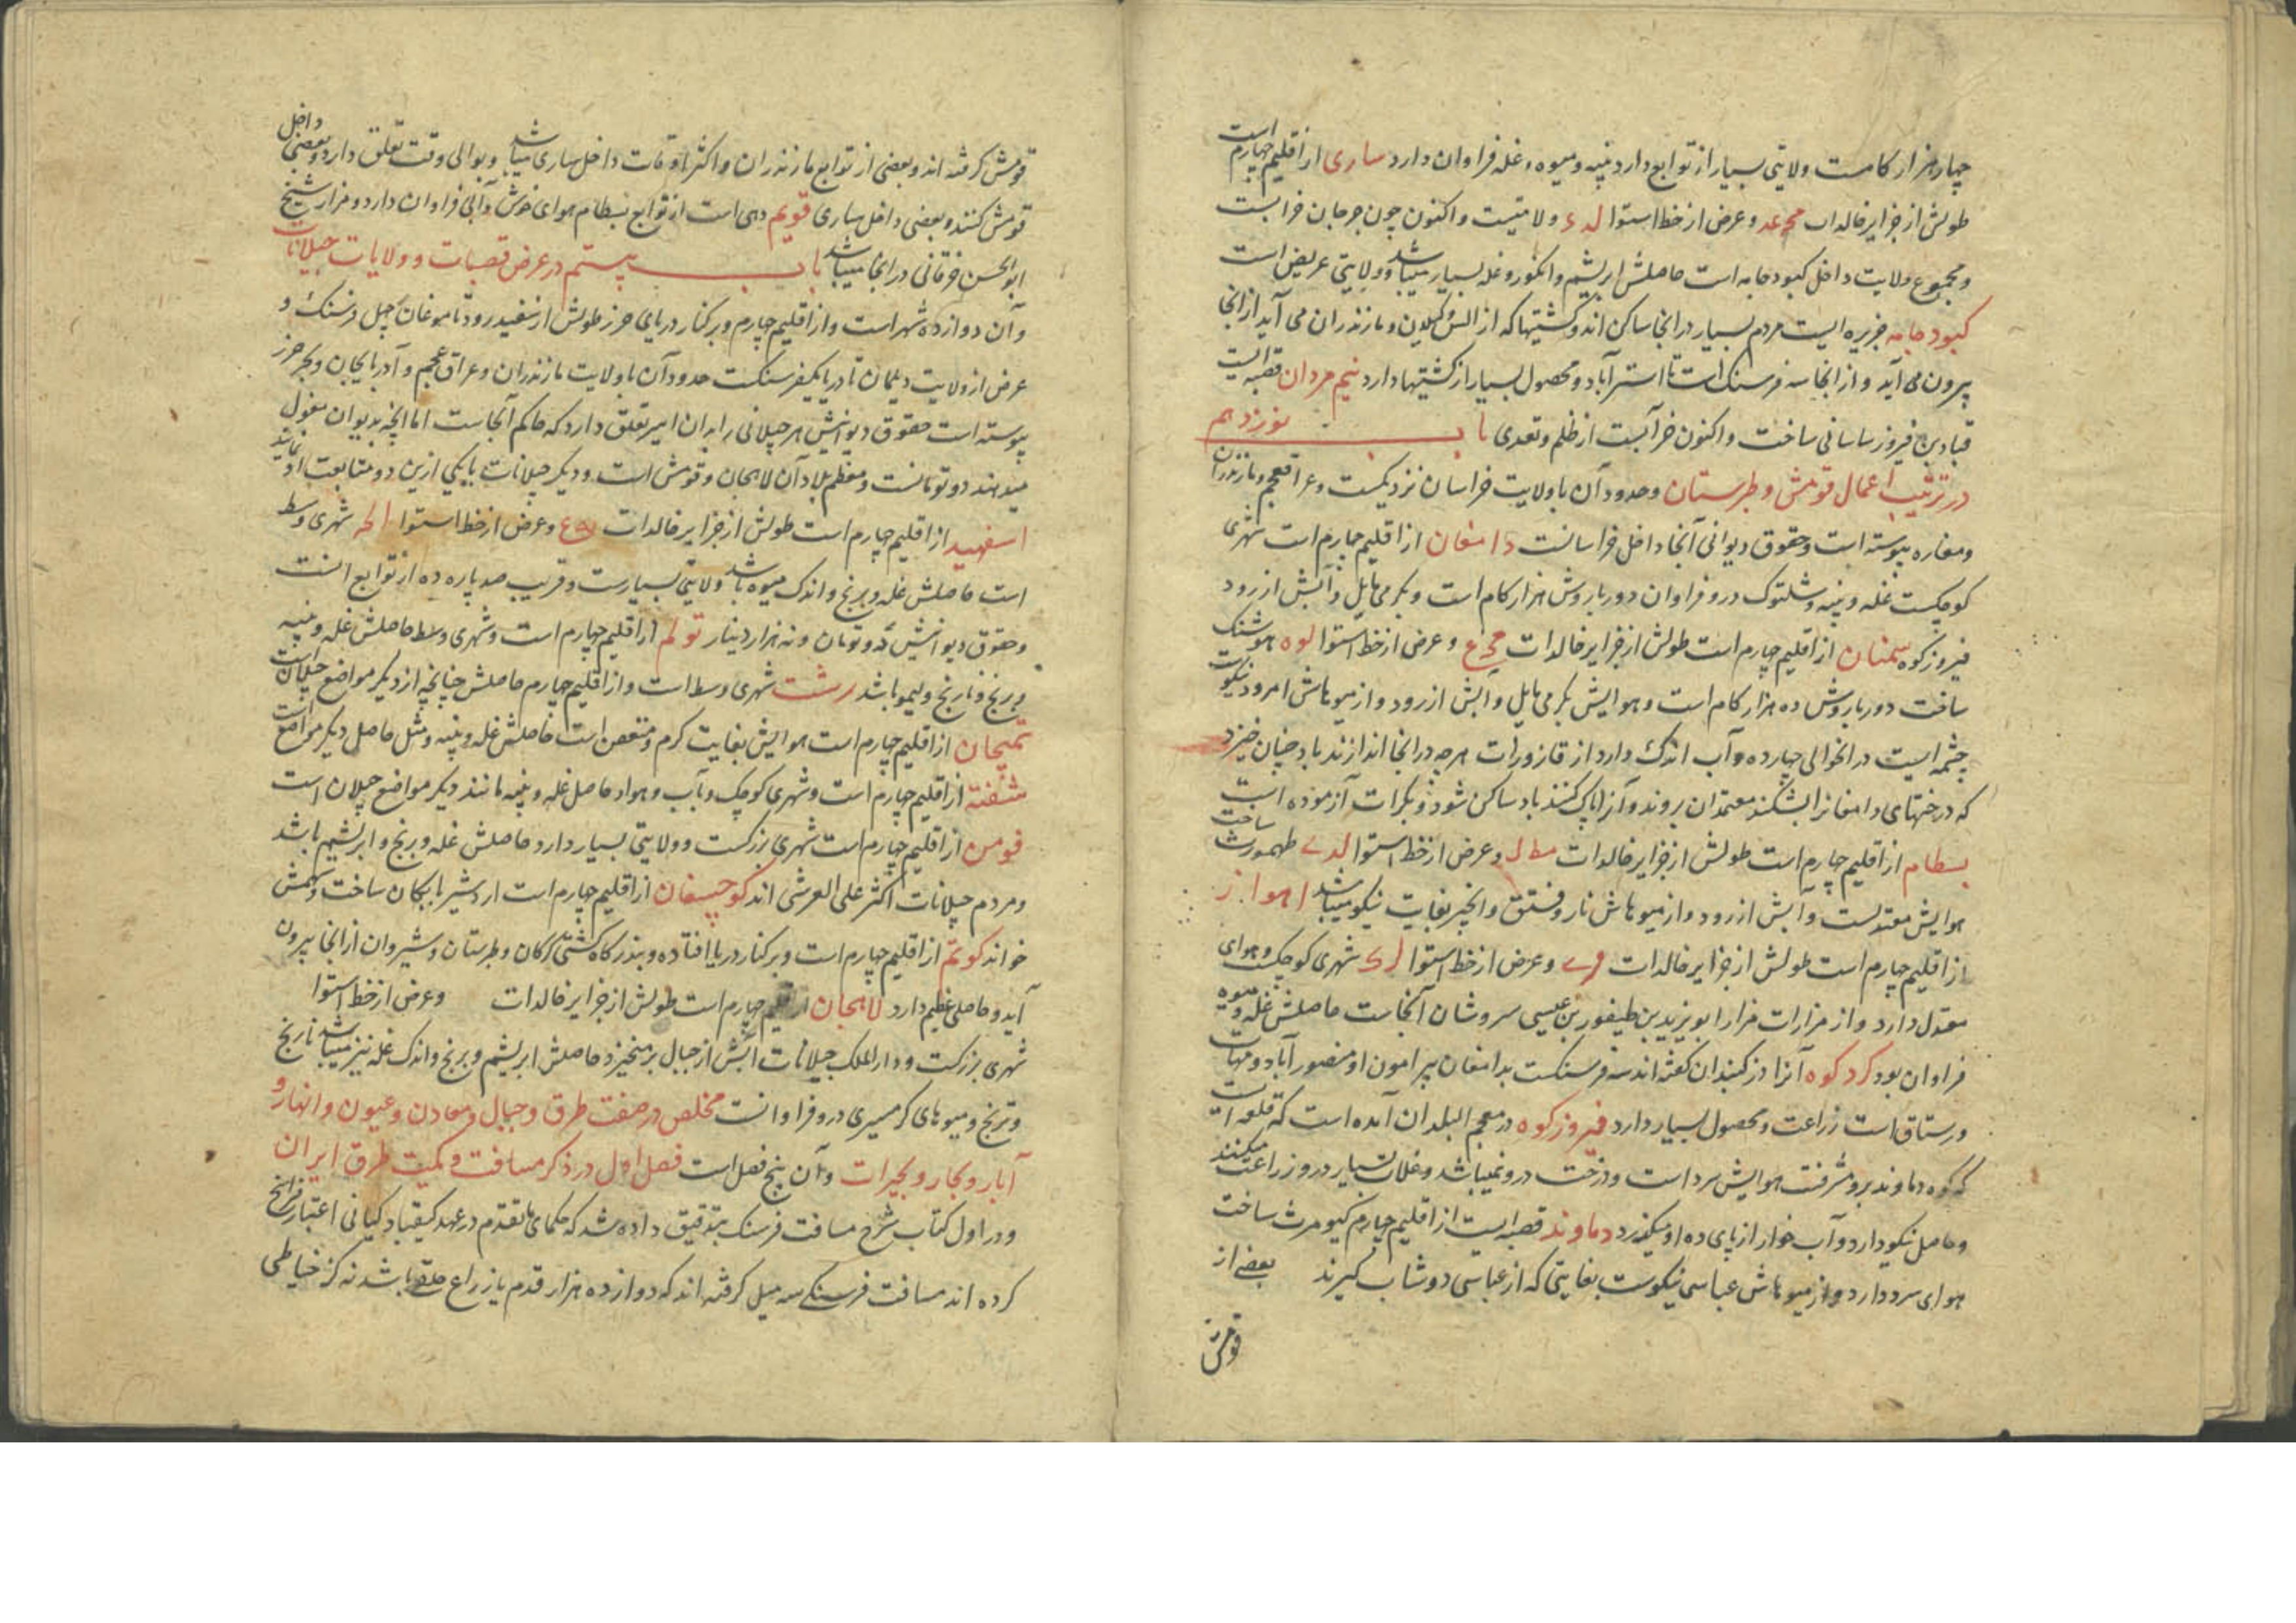 چهار هزار کامست ولایتی بسیار از توابع دارد پنبه و میوه و غله فراوان دارد ساری از اقلیم چهارم است
طولش از جزایر خالدات مح عد و عرض از خط استوا لد ء ولایتیست و اکنون چون جرجان خرابست
و مجموع ولایت داخل کبود جامه است حاصلش ابریشم و انکور و غله بسیار میباشد و ولایتی عریض است
کبود جامه جزیره ایست مردم بسیار در انجا ساکن اند و کشتیها که از الش و کیلان و مازندران می آید از انجا
بیرون می آید و از انجا سه فرسنک است تا استرآباد و محصول بسیار از کشتیها دارد نیم مردان قصبه ایست
قباد بن فیروز ساسانی ساخت و اکنون خرابست از ظلم و تعدی باب نوزدهم
در ترتیب اعمال قومش و طبرستان و حدود آن با ولایت خراسان نزدیکست و عراق عجم و مازندران
و مفازه پیوسته است و حقوق دیوانی آنجا داخل خراسانست دامغان از اقلیم چهارم است شهری
کوچکست غله و پنبه و شلتوک درو فراوان دور باروش هزار کام است و بکرمی مایل و آبش از رود
فیروز کوه سمنان از اقلیم چهارم است طولش از جزایر خالدات مح ع و عرض از خط استوا لوه هوشنک
ساخت دور باروش ده هزار کام است و هوایش بکرمی مایل و آبش از رود و از میوهاش امرود نیکوست
چشمه ایست در انحوالی چهارده و آب اندک دارد از قازورات هر چه در انجا اندازند باد چنان خیزد
که درختهای دامغانرا بشکند معتمدان بروند و آنرا پاک کنند باد ساکن شود و بکرات آزموده است
بسطام از اقلیم چهارم است طولش از جزایر خالدات مطال و عرض از خط استوا لدے طهمورث ساخت
هوایش معتدلست و آبش از رود و از میوهاش نار و فستق و انجیر بغایت نیکو میباشد اهواز
از اقلیم چهارم است طولش از جزایر خالدات و عرض از خط استوا شهری کوچکست و هوای
معتدل دارد و از مزارات مزار ابویزید بن طیفور بن عیسی سروشان آنجاست حاصلش غله و میوه
فراوان بود کرد کوه آنرا دز کنبدان کفته اند سه فرسنکست بدامغان پیرامون او منصور آباد و مهات
و رستاق است زراعت و محصول بسیار دارد فیروز کوه در معجم البلدان آمده است که قلعه ایست
که کوه دماوند برو مشرفت هوایش سرد است و درخت درو نمیباشد و غلات بسیار درو زراعت میکنند
و حاصل نیکو دارد و آب خوار از پای ده او میکذرد دماوند قصبه ایست از اقلیم چهارم کیومرث ساخت
هوای سرد دارد و از میوهاش عباسی نیکوست بغایتی که از عباسی دوشاب کیرند بعضی از
قومش
قومش کرفته اند و بعضی از توابع مازندران و اکثر اوقات داخل ساری میباشد و بوالی وقت تعلق دارد و بعضی داخل
قومش کنند و بعضی داخل ساری قویم دهی است از توابع بسطام هوای خوش و آبی فراوان دارد و مزار شیخ
ابو الحسن خرقانی در انجا میباشد باب بیستم در عرض قصبات و ولایات جیلانات
و آن دوازده شهر است و از اقلیم چهارم و بر کنار دریای خزر طولش از سفید رود تا موغان چهل فرسنک و
عرض از ولایت دیلمان تا دریا یکفرسنکست حدود آن با ولایت مازندران و عراق عجم و آدربایجان و بحر خزر
پیوسته است حقوق دیوانیش هر جیلانی را بدان امیر تعلق دارد که حاکم آنجاست اما انچه بدیوان مغول
میدهند دو تومانست و معظم بلاد آن لاهجان و قومش است و دیکر جیلانات بایکی ازین دو متابعت او نمایند
اسفهبد از اقلیم چهارم است طولش از جزایر خالدات و عرض از خط استوا شهری وسط
است حاصلش غله و برنج و اندک میوه باشد ولایتی بسیارست و قریب صد پاره ده از توابع انست
و حقوق دیوانیش دو تومان و نه هزار دینار تولم از اقلیم چهارم است و شهری وسط حاصلش غله و پنبه
و برنج و نارنج و لیمو باشد رشت شهری وسط است و از اقلیم چهارم حاصلش چنانچه از دیکر مواضع جیلانات
تمیجان از اقلیم چهارم است هوایش بغایت کرم و متعفن است حاصلش غله و پنبه و مثل حاصل دیکر مواضع
شفته از اقلیم چهارم است و شهری کوچک و بآب و هوا و حاصل غله و پنبه مانند دیکر مواضع جیلان است
فومن از اقلیم چهارم است شهری بزرکست و ولایتی بسیار دارد حاصلش غله و برنج و ابریشم باشد
و مردم جیلانات اکثر علی العرشی اند کوجسفان از اقلیم چهارم است اردشیر بابکان ساخت و بهمنش
خواند کوتم از اقلیم چهارم است و بر کنار دریا افتاده و بندر کاه کشتی کرکان و طبرستان و شیروان از انجا بیرون
آید و حاصلی عظیم دارد لاهجان از اقلیم چهارم است طولش از جزایر خالدات و عرض از خط استوا
شهری بزرکست و دار الملک جیلانات آبش از جبال برمیخیزد حاصلش ابریشم و برنج و اندک غله نیز میباشد نارنج
و ترنج و میوهای کرمسیری درو فراوانست مخلص در صفت طرق و جبال و معادن و عیون و انهار و
آبار و بحار و بحیرات و آن پنج فصل است فصل اول در ذکر مسافت و کمیت طرق ایران
و در اول کتاب شرح مسافت فرسنک بتدقیق داده شد که حکمای ماتقدم در عهد کیقباد کیانی اعتبار فراسخ
کرده اند مسافت فرسنکی سه میل کرفته اند که دوازده هزار قدم یا زراع خلقی باشد نه کز خیاطی